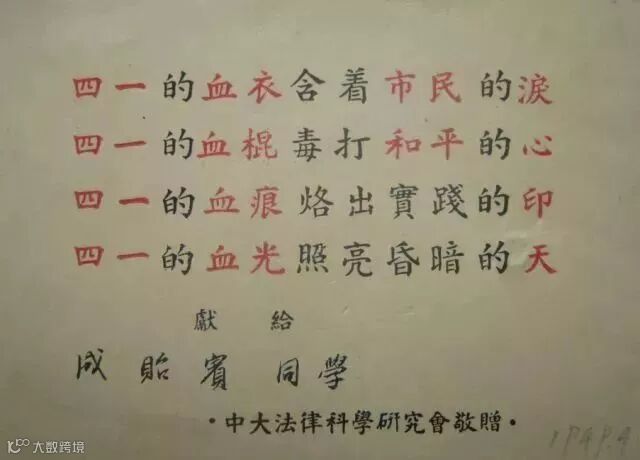 四一的血衣含着市民的淚
四一的血棍毒打和平的心
四一的血痕烙出實踐的印
四一的血光照亮昏暗的天
獻給
成貽賓 同學
·中大法律科學研究會敬贈·
1949.4
大數跨境